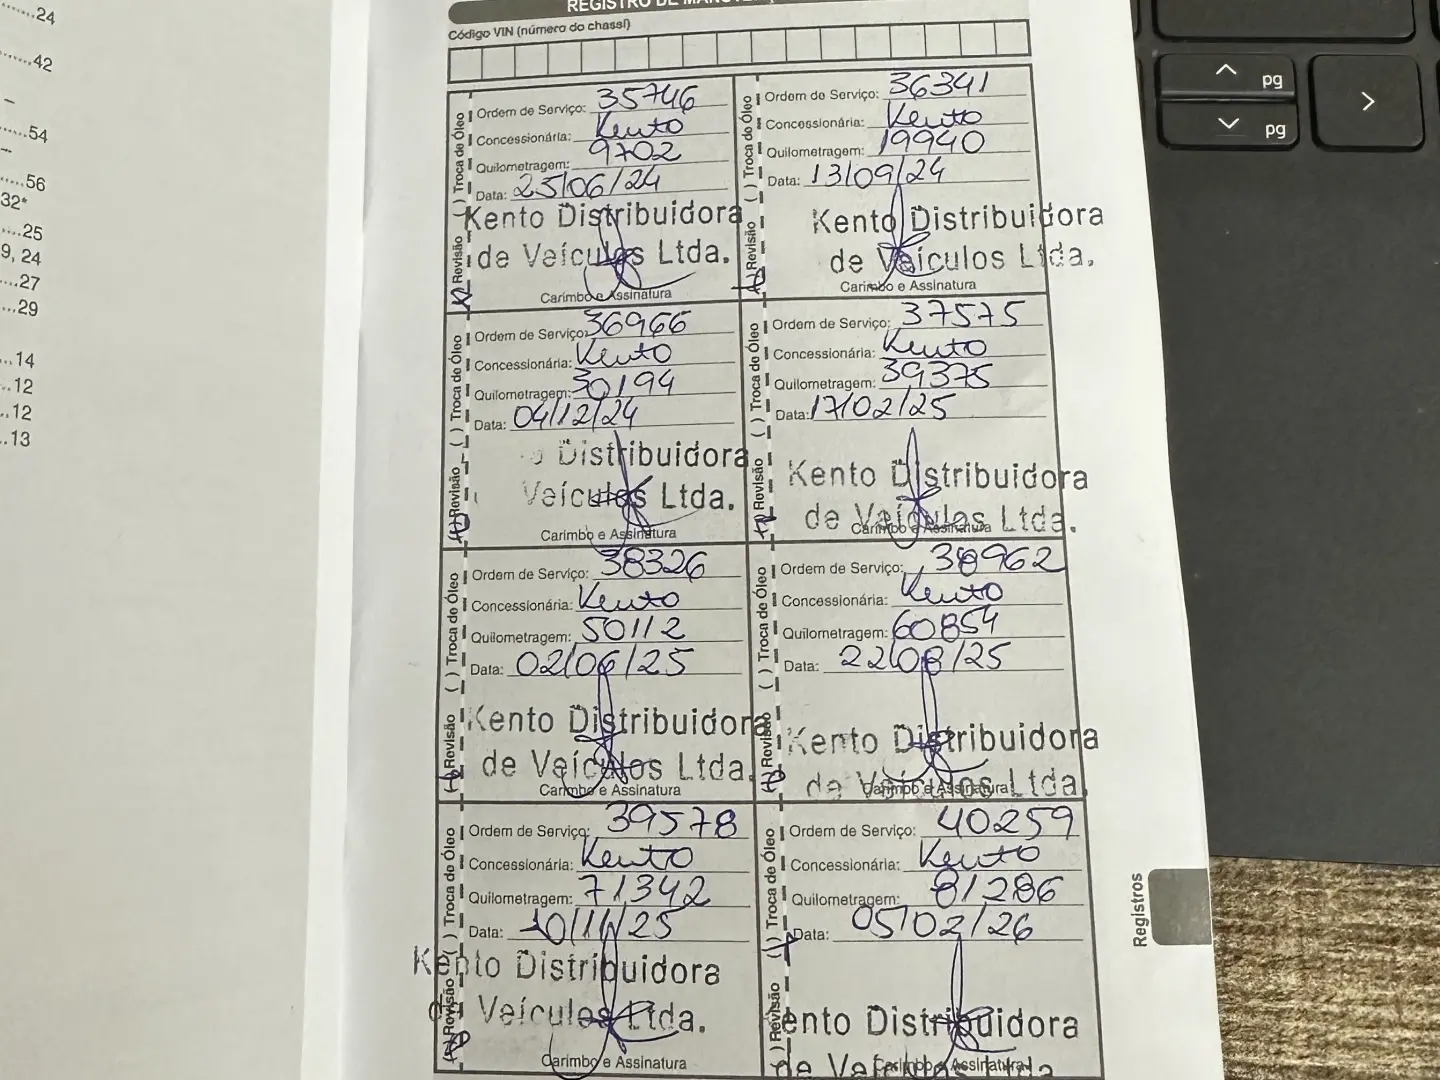 24
42
54
56
32*
25
9, 24
27
29
14
12
12
13
Código VIN (número do chassi)
Ordem de Serviço: 35746
Concessionária: Kento
Quilometragem: 9702
Data: 25/06/24
Kento Distribuidora
de Veículos Ltda.
Carimbo e Assinatura
( ) Troca de Óleo
Revisão
Ordem de Serviço: 36341
Concessionária: Kento
Quilometragem: 19940
Data: 13/09/24
Kento Distribuidora
de Veículos Ltda.
Carimbo e Assinatura
( ) Troca de Óleo
Revisão
Ordem de Serviço: 36966
Concessionária: Kento
Quilometragem: 30194
Data: 04/12/24
Distribuidora
Veículos Ltda.
Carimbo e Assinatura
( ) Troca de Óleo
Revisão
Ordem de Serviço: 37575
Concessionária: Kento
Quilometragem: 39375
Data: 17/02/25
Kento Distribuidora
de Veículos Ltda.
Carimbo e Assinatura
( ) Troca de Óleo
Revisão
Ordem de Serviço: 38326
Concessionária: Kento
Quilometragem: 50112
Data: 02/06/25
Kento Distribuidora
de Veículos Ltda.
Carimbo e Assinatura
( ) Troca de Óleo
Revisão
Ordem de Serviço: 38962
Concessionária: Kento
Quilometragem: 60854
Data: 22/08/25
Kento Distribuidora
de Veículos Ltda.
Carimbo e Assinatura
( ) Troca de Óleo
Revisão
Ordem de Serviço: 39578
Concessionária: Kento
Quilometragem: 71342
Data: 10/11/25
Kento Distribuidora
de Veículos Ltda.
Carimbo e Assinatura
( ) Troca de Óleo
Revisão
Ordem de Serviço: 40259
Concessionária: Kento
Quilometragem: 81286
Data: 05/02/26
Kento Distribuidora
de Veículos Ltda
Carimbo e Assinatura
Troca de Óleo
( ) Revisão
Registros
pg
pg